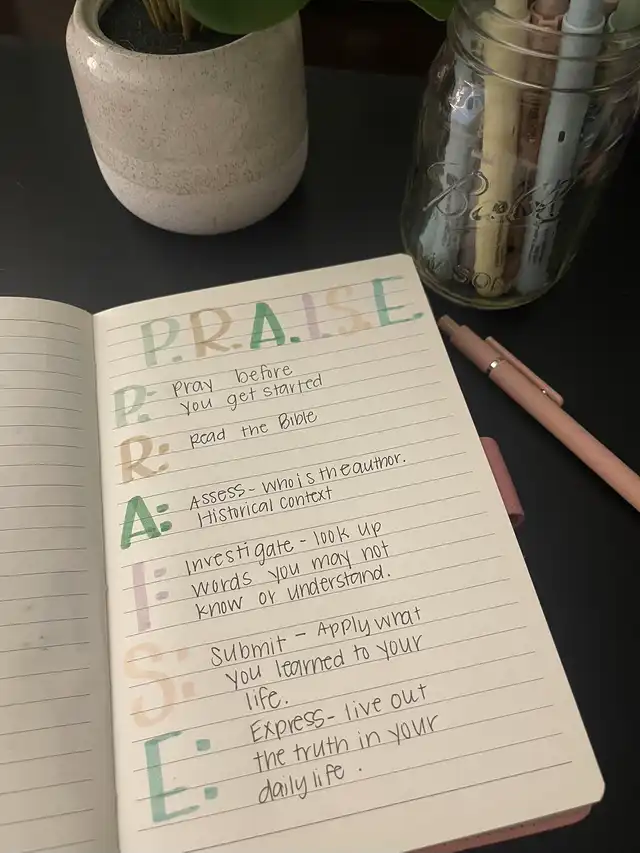 P.R.A.I.S.E.
P: Pray before
you get started
R: Read the Bible
A: Assess - who is the author.
Historical context
I: Investigate - look up
words you may not
know or understand.
S: Submit - Apply what
you learned to your
life.
E: Express - live out
the truth in your
daily life.